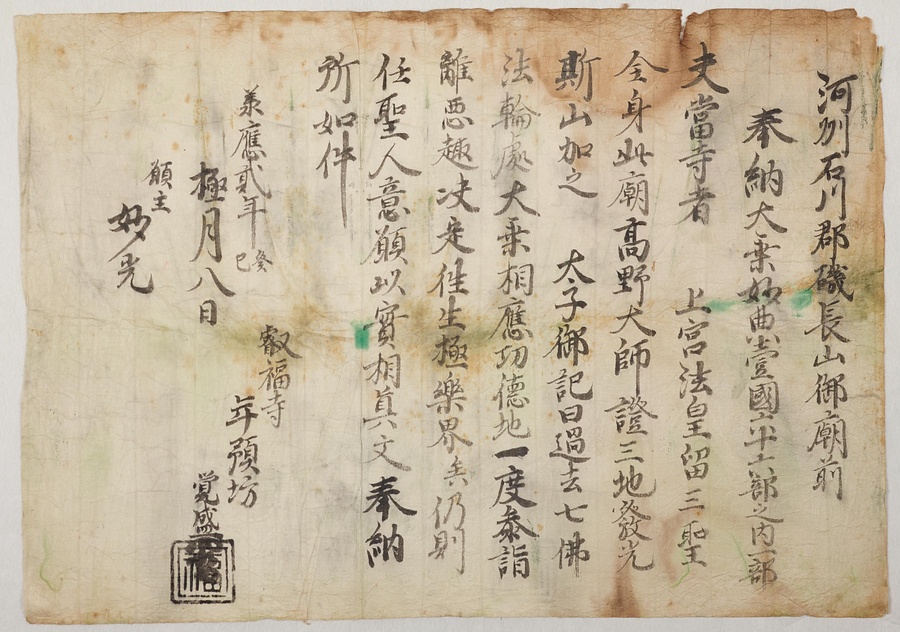 河州石川郡磯長山御廟前
奉納大乗妙典壹國六十六部之内一部
夫當寺者　上宮法皇留三聖
全身此廟高野大師證三地發光
斯山加之　太子御記曰過去七佛
法輪處大乗相應功徳地一度参詣
離悪趣决定徃生極樂界矣仍則
任聖人意願以實相真文奉納
所如件
承應貳年癸巳
極月八日
願主
妙光
叡福寺
年預坊
覚盛